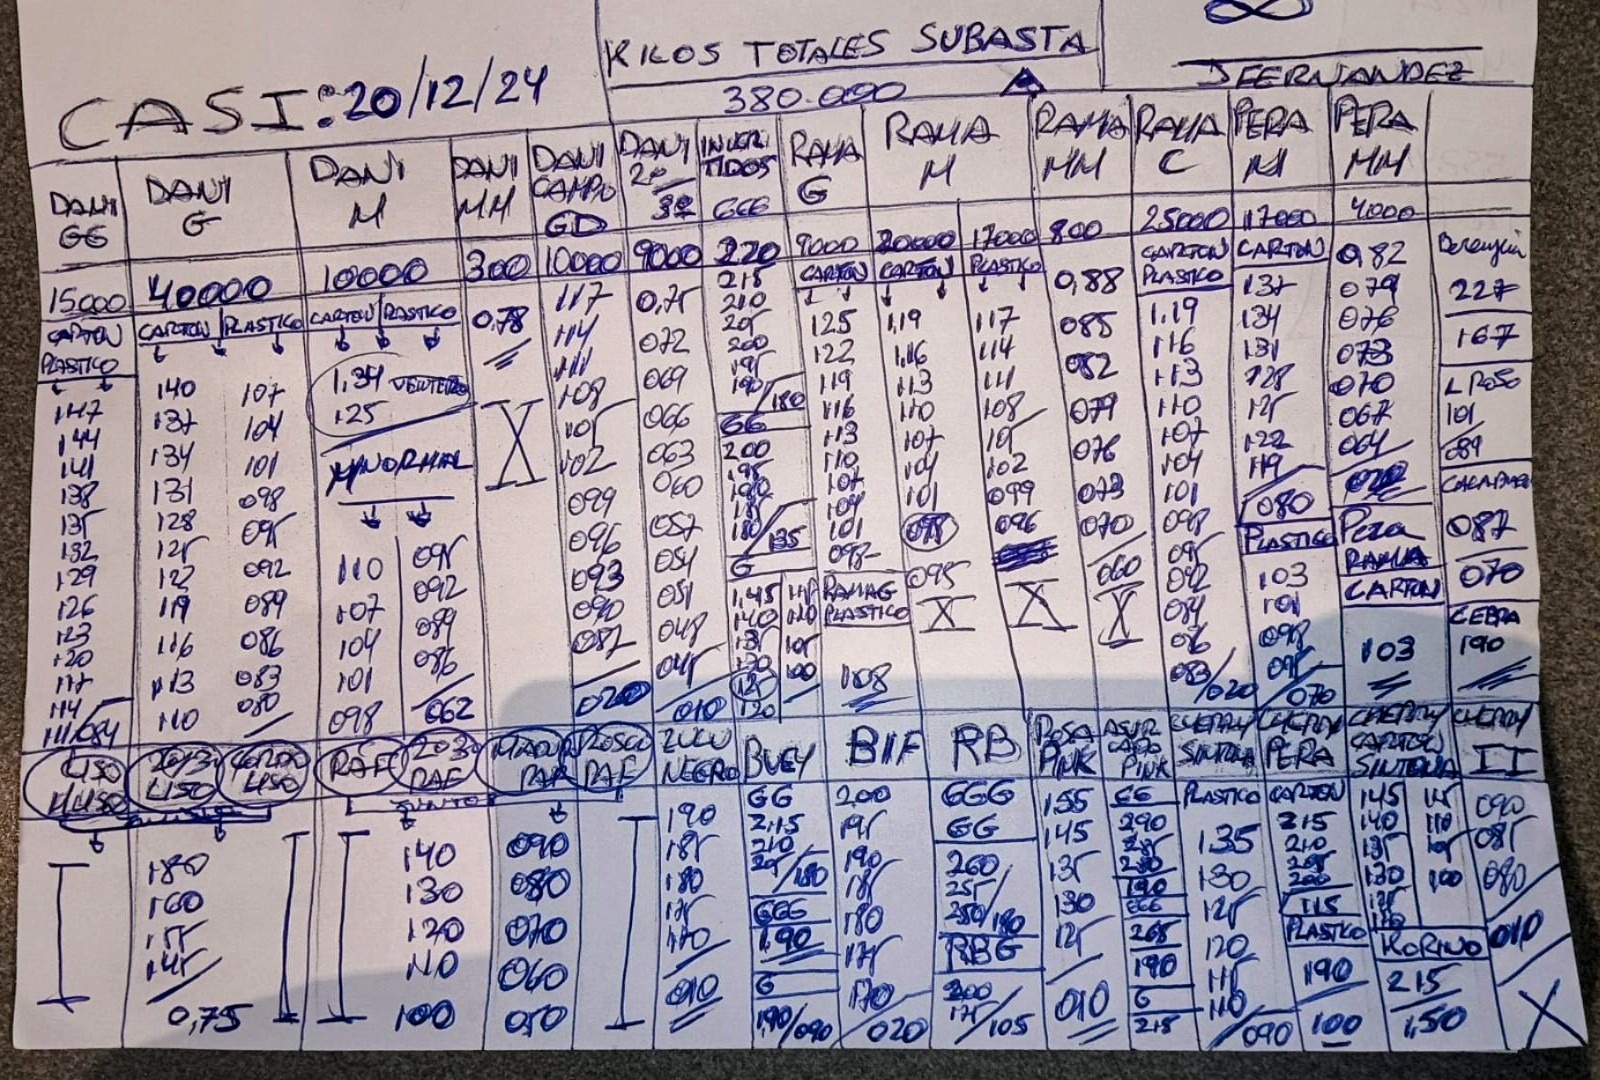 KILOS TOTALES SUBASTA
380.000
JFERNANDEZ
CASI: 20/12/24
DANI GG
15000
CARTON
PLASTICO
147
144
141
138
135
132
129
126
123
120
117
114
111/084
DANI G
40000
CARTON PLASTICO
140 107
137 104
134 101
131 098
128 095
125 092
122 089
119 086
116 083
113 080
110
DANI M
10000
CARTON PLASTICO
1,34 VENTERO
125
M NORMAL
110 095
107 092
104 089
101 086
098 062
DANI MM
300
0,78
X
DANI CAMPO GD
10000
117
114
111
108
105
102
099
096
093
090
087
020
DANI 2ª
9000
0,75
072
069
066
063
060
057
054
051
048
045
010
INVERTIDOS
GGG
220
215
210
205
200
195
190/180
GG
200
195
190
185
180/135
G
1,45 115
140 110
135 105
130 100
125
120
RAMA G
9000
CARTON
125
122
119
116
113
110
107
104
101
098
RAMA G
PLASTICO
108
RAMA M
20000 17000
CARTON PLASTICO
1,19 117
1,16 114
113 111
110 108
107 105
104 102
101 099
098 096
095
X X
RAMA MM
800
0,88
085
082
079
076
073
070
060
X
RAMA C
25000
CARTON
PLASTICO
1.19
116
113
110
107
104
101
098
095
092
089
086
083/020
PERA M
17000
CARTON
137
134
131
128
125
122
119
080
PLASTICO
103
101
098
095
070
PERA MM
4000
0,82
079
076
073
070
067
064
020
Pera
RAMA
CARTON
103
Berenjena
227
167
L ROSO
101
089
CALABACIN
087
070
CEBRA
190
LISO
M LISO
2ª/3ª
LISO
GORDO
LISO
180
160
155
145
0,75
RAF
2ª3ª
RAF
JUNTO
140
130
120
110
100
MADUR
RAF
ROSCO
RAF
090
080
070
060
050
ZULU
NEGRO
190
185
180
175
170
010
BUEY
GG
215
210
205/180
GGG
1,90
G
1,90/090
BIF
200
195
190
185
180
175
170
020
RB
GGG
GG
260
255
250/190
RBG
200
175/105
ROSA
PINK
1.55
145
135
130
125
010
ASURCADO
PINK
GG
290
285
280
190
GGG
265
190
G
215
CHERRY
SINTONIA
PLASTICO
1.35
130
125
120
115
110
090
CHERRY
PERA
CARTON
215
210
205
200
115
PLASTICO
190
100
CHERRY
CARTON
SINTONIA
145 115
140 110
135 105
130 100
125
120
KORINO
215
1,50
CHERRY
II
090
085
080
010
X